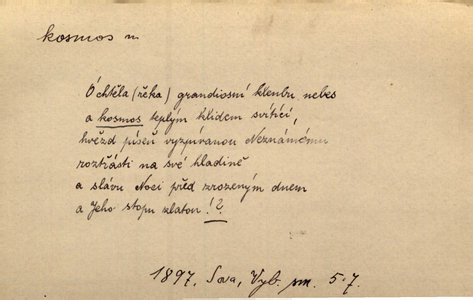 kosmos m.
Ó chtěla (řeka) grandiosní klenbu nebes
a kosmos teplým klidem svítící,
hvězd píseň vyzpívanou Neznámému
roztřásti na své hladině
a slávu Noci před zrozeným dnem
a Jeho stopu zlatou!?
1897. Sova, Vyb. 5.7.